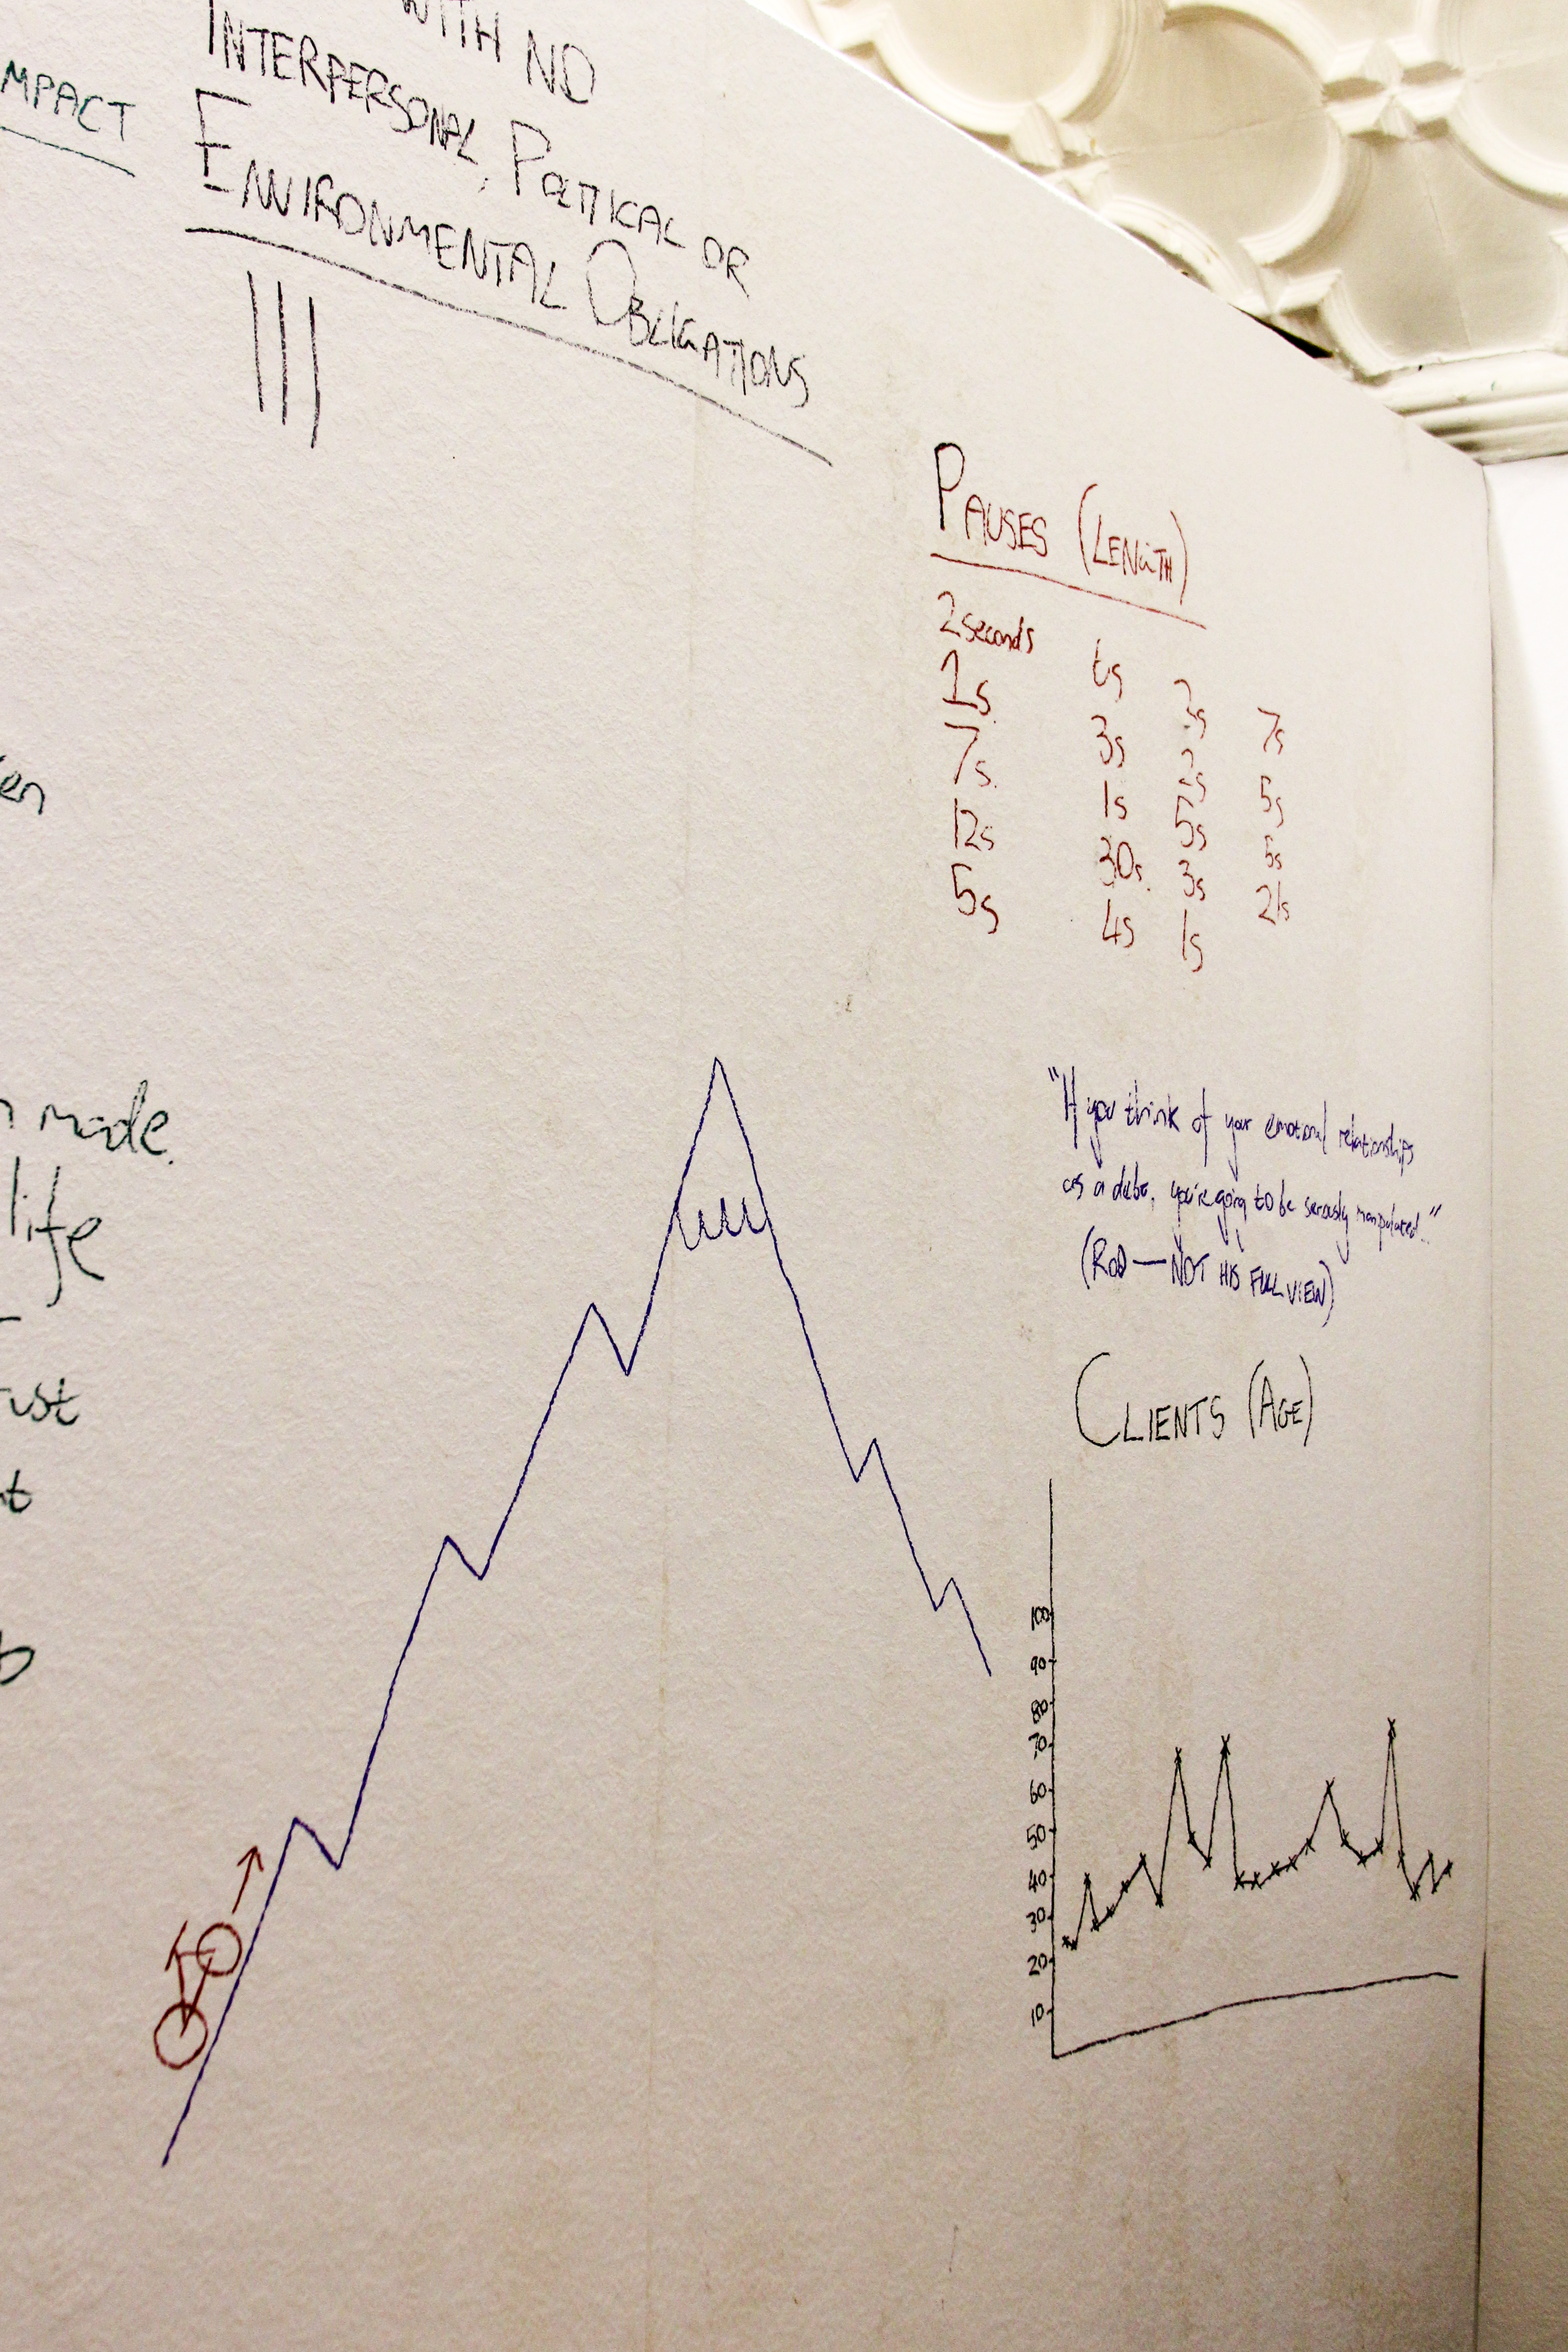 WITH NO
INTERPERSONAL, POLITICAL OR
ENVIRONMENTAL OBLIGATIONS
MPACT
PAUSES (LENGTH)
2 seconds
1s
7s
12s
5s
6s
3s
1s
30s
4s
2s
2s
5s
3s
1s
7s
5s
5s
21s
en
made
life
"If you think of your emotional relationships
as a debt, you're going to be seriously manipulated."
(ROD — NOT HIS FULL VIEW)
CLIENTS (AGE)
100
90
80
70
60
50
40
30
20
10